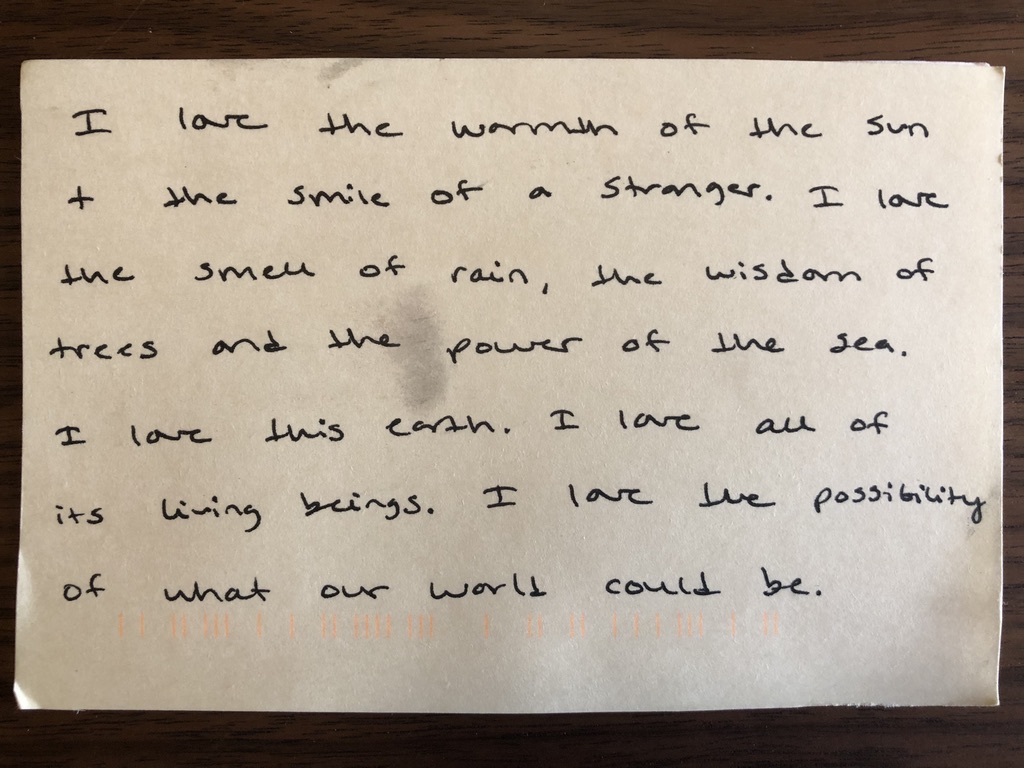 I love the warmth of the sun
+ the smile of a stranger. I love
the smell of rain, the wisdom of
trees and the power of the sea.
I love this earth. I love all of
its living beings. I love the possibility
of what our world could be.